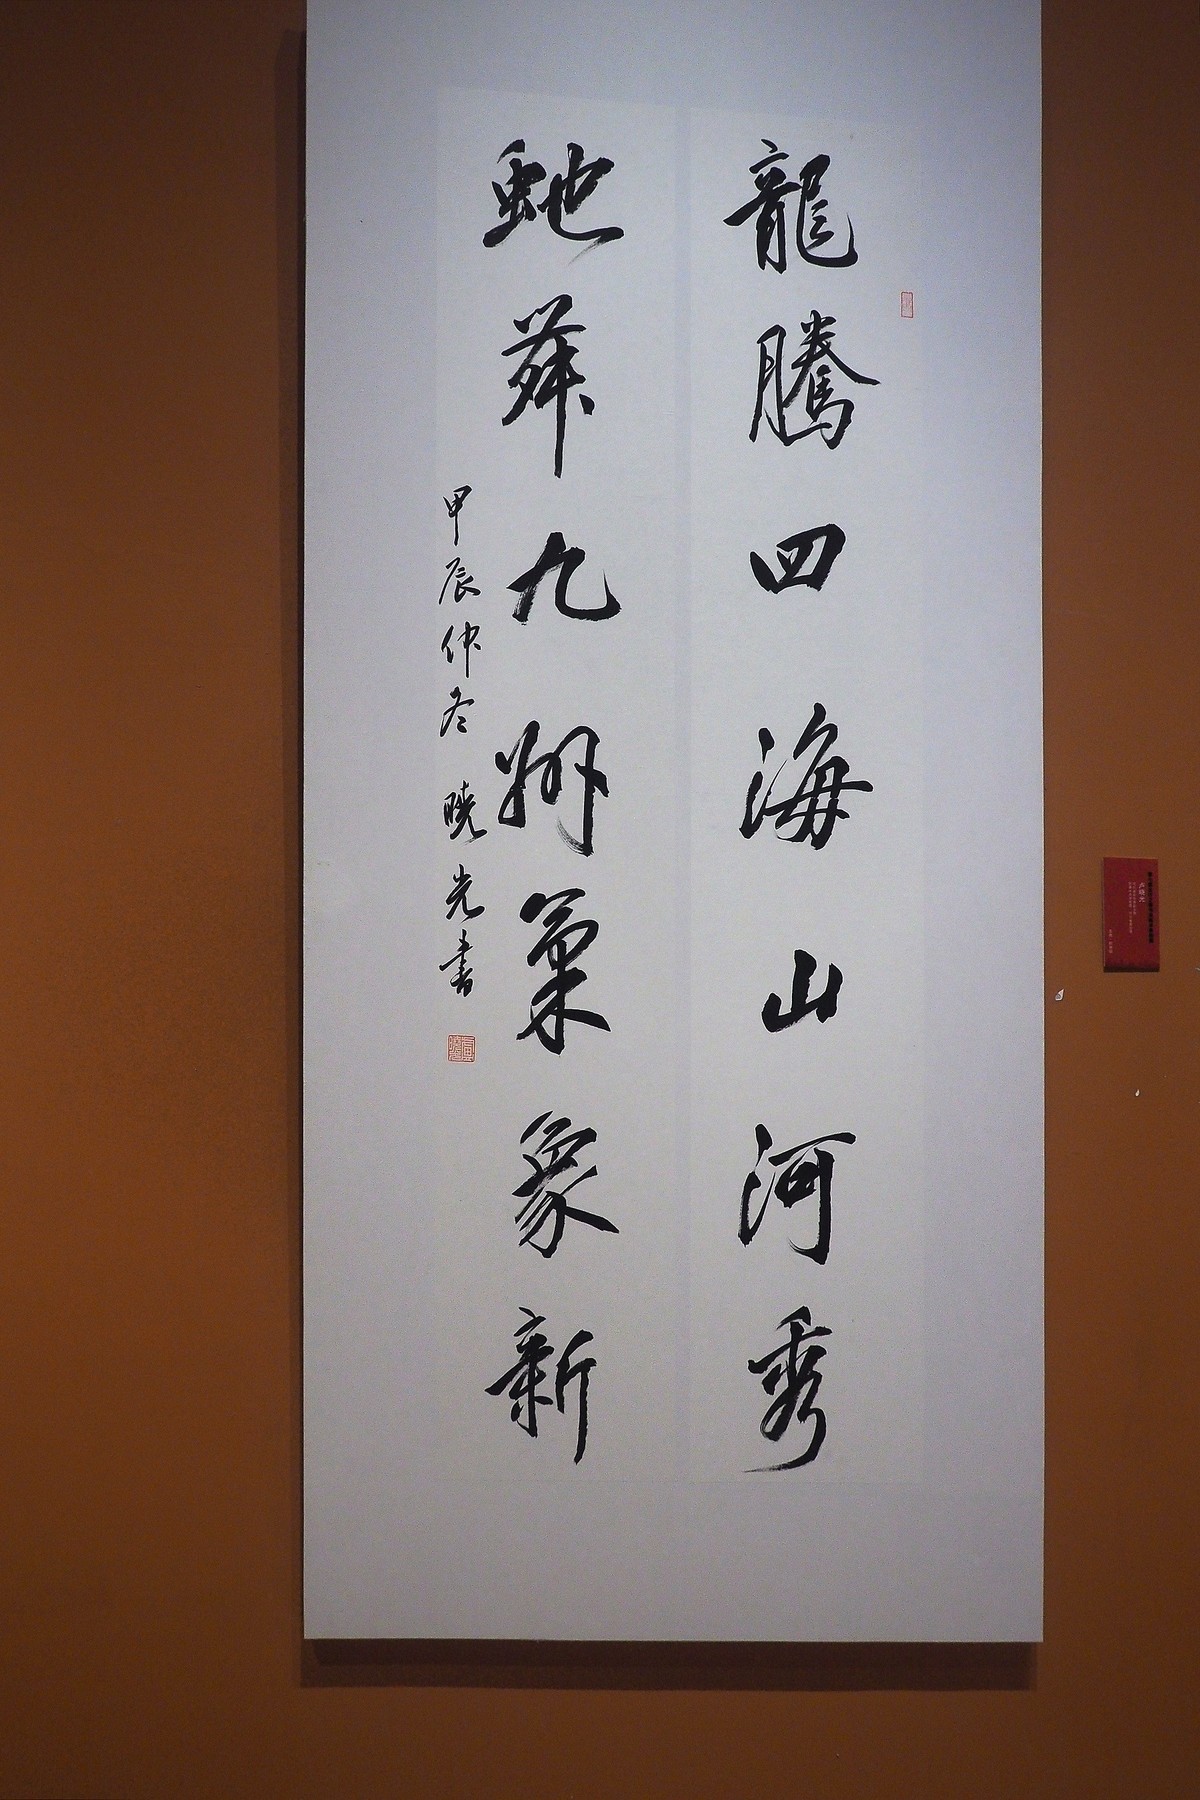 龍騰四海山河秀
虵舞九州氣象新
甲辰仲冬 曉光書
卢晓光